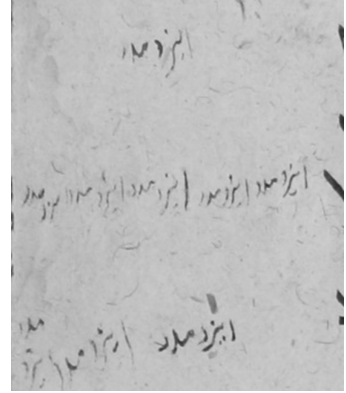 ایزد مدد
ایزد مدد ایزد مدد ایزد مدد ایزد مدد ایزد مدد
ایزد مدد ایزد مدد ایزد مدد